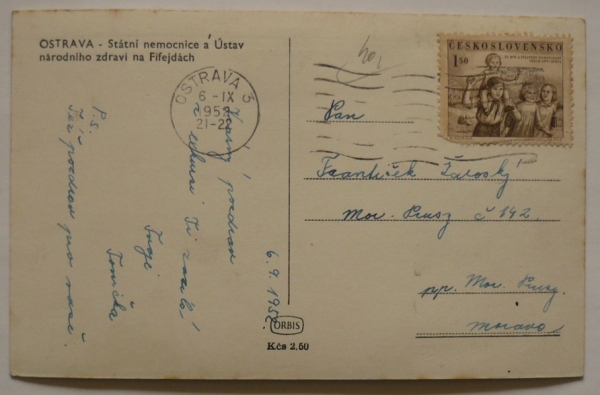 OSTRAVA - Státní nemocnice a Ústav
národního zdraví na Fifejdách
OSTRAVA 3
6 -IX
195
21-22
ČESKOSLOVENSKO
1,50
pozdrav
Ti
Tvoji
Tonička
P.S.
Též pozdrav pro vaše.
6.9.1952
Pan
František
Mor. Prusy č 142
pp. Mor. Prusy
Morava
ORBIS
Kčs 2.50